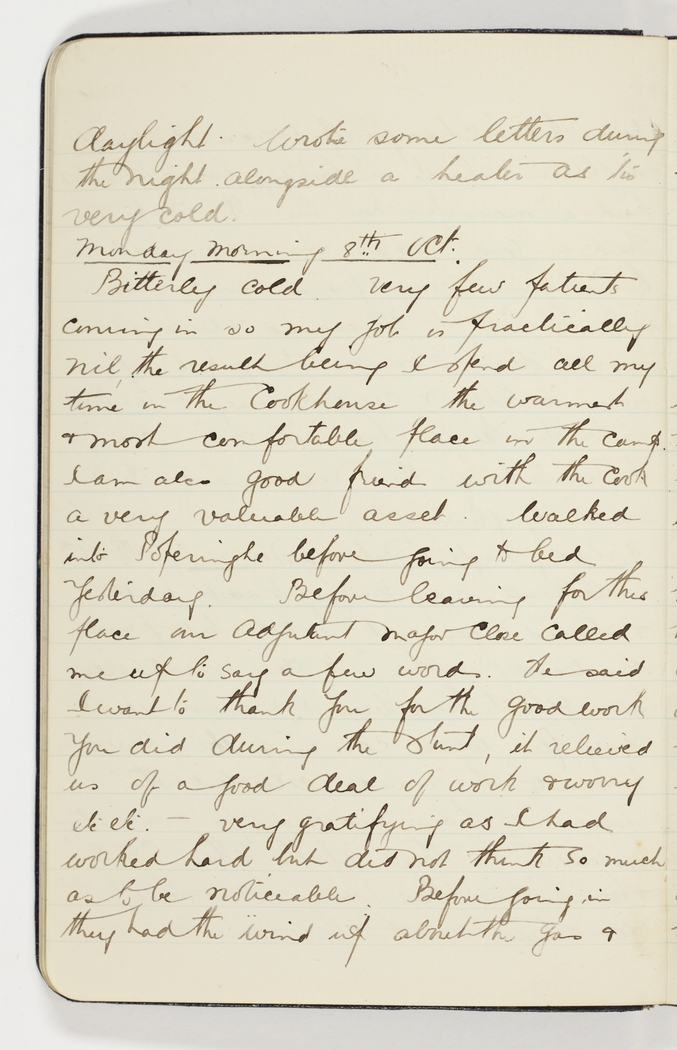 daylight. Wrote some letters during
the night alongside a heater as 'tis
very cold.
Monday Morning 8th Oct.
Bitterley cold. Very few patients
coming in so my job is practically
nil, the result being I spend all my
time in the Cookhouse the warmest
& most comfortable place in the camp.
I am also good friend with the Cook
a very valuable asset. Walked
into Poferinghe before going to bed
Yesterday. Before leaving for this
place our Adjutant Major Close called
me up to say a few words. He said
I want to thank you for the good work
you did during the stunt, it relieved
us of a good deal of work & worry
etc etc. — very gratifying as I had
worked hard but did not think so much
as to be noticeable. Before going in
they had the "wind up" about the gas &